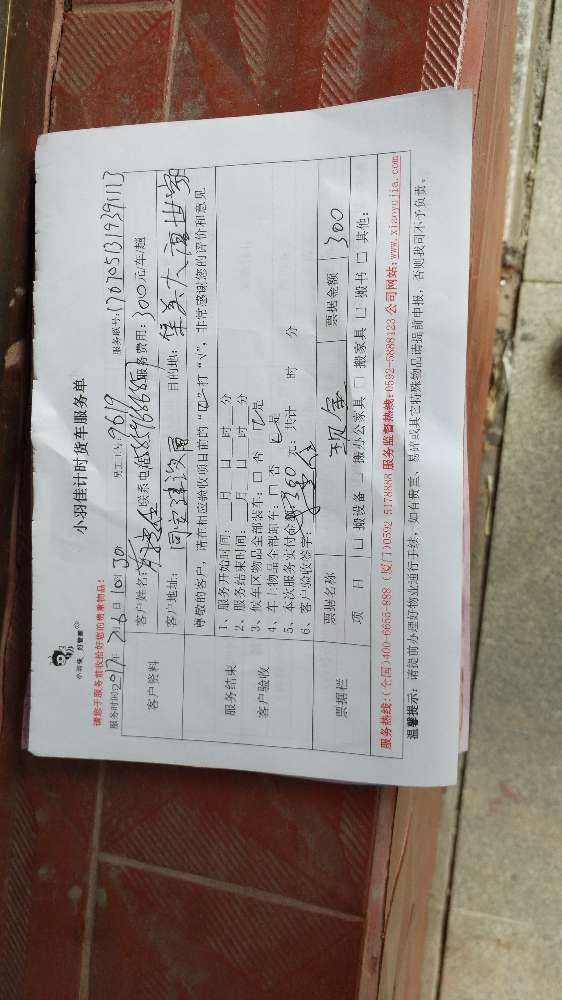 小羽佳计时货车服务单
小羽佳, 好管家
请您于服务前收拾好您的贵重物品！
服务时间2017年7月6日10时30
员工工号：9619
服务账号：170705131939113
客户资料
客户姓名：
联系电话
服务费用：300元/车/趟
客户地址：同安建设局
目的地：集美大
尊敬的客户，请在相应验收项目前的“□”打“√”，非常感谢您的评价和意见
服务结束
客户验收
1、服务开始时间：__月__日__时__分
2、服务结束时间：__月__日__时__分
3、候车区物品全部装车：□ 否 ☑是
4、车上物品全部卸车：□ 否 ☑是
5、本次服务实付金额300元；共计 时 分
6、客户验收签字：
票据栏
票据名称
现金
票据金额
300
项 目
□ 搬设备 □ 搬办公家具 □ 搬家具 □ 搬书 □ 其他：
服务热线：（全国）400-6655-888 （厦门）0592-5178888 服务监督热线：0592-5888123 公司网站：www.xiaoyujia.com
温馨提示：请提前办理好物业通行手续，如有贵重、易碎或其它特殊物品请提前申报，否则我司不予负责。